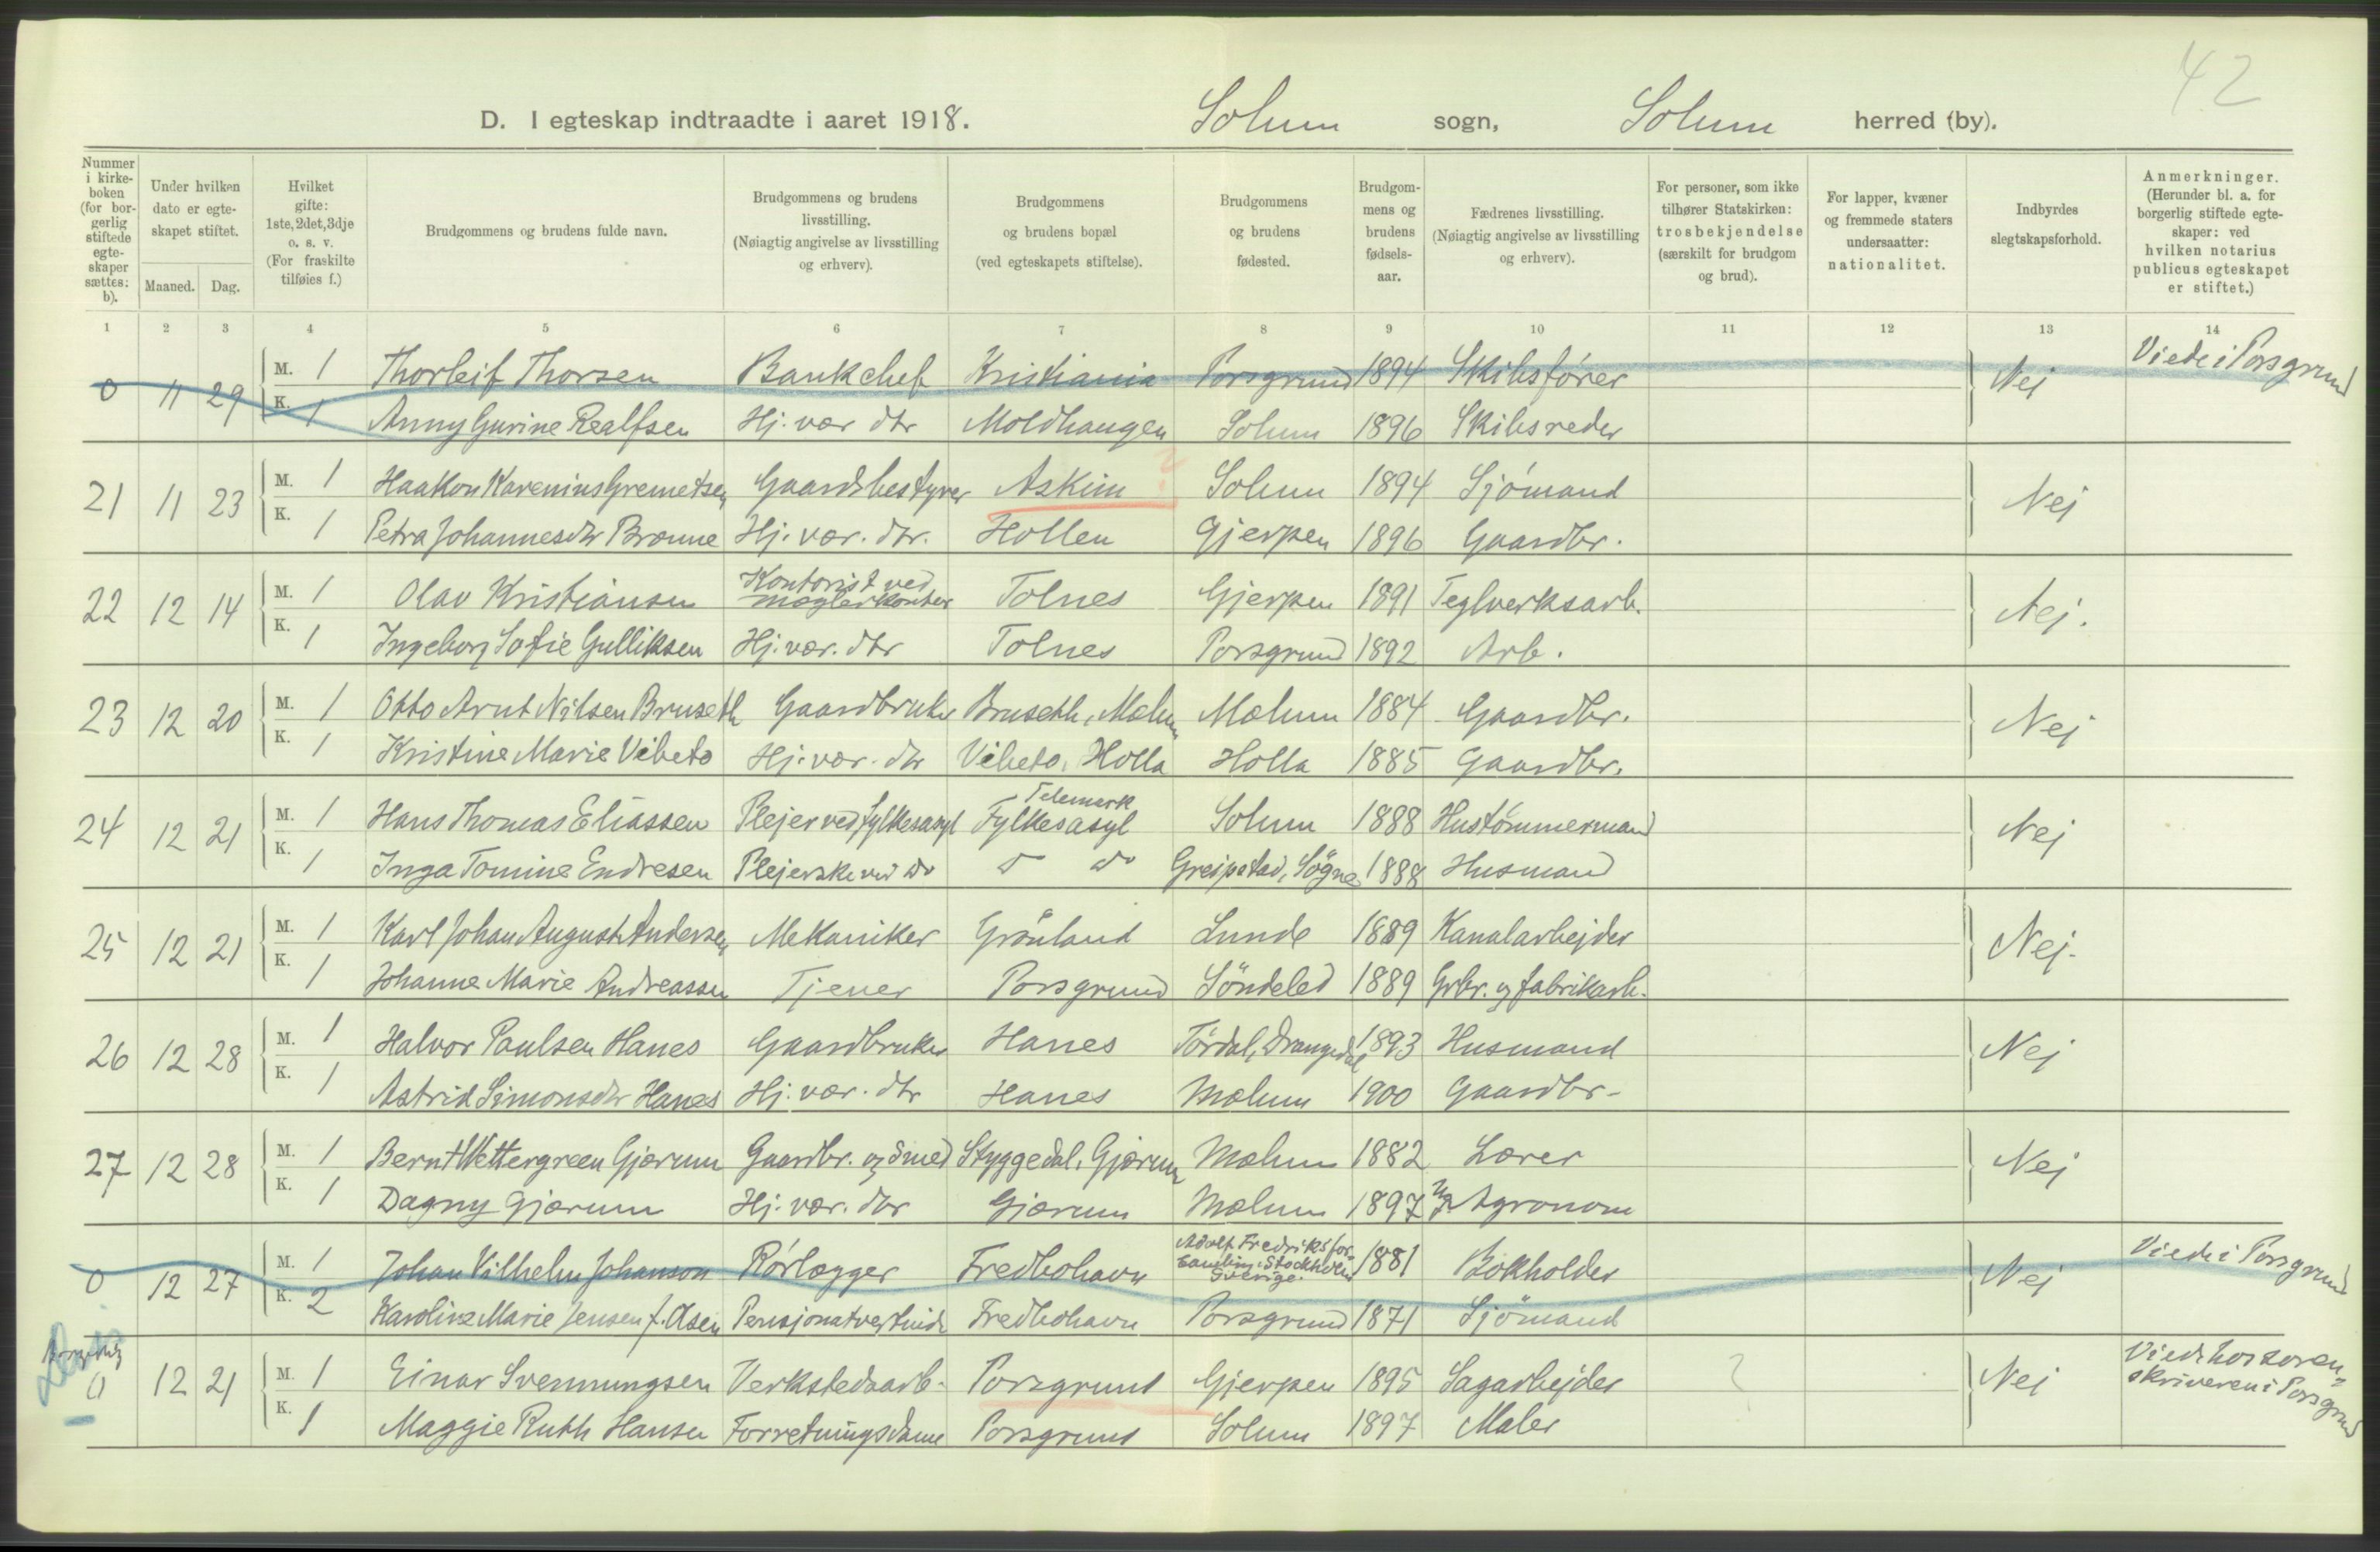 42
D. I egteskap indtraadte i aaret 1918. Solum sogn, Solum herred (by).
Nummer i kirke-boken (for bor-gerlig stiftede egte-skaper sættes: b).
Under hvilken dato er egte-skapet stiftet.
Maaned. Dag.
Hvilket gifte: 1ste, 2det, 3dje o. s. v. (For fraskilte tilføies f.)
Brudgommens og brudens fulde navn.
Brudgommens og brudens livsstilling. (Nøiagtig angivelse av livsstilling og erhverv).
Brudgommens og brudens bopæl (ved egteskapets stiftelse).
Brudgommens og brudens fødested.
Brudgom-mens og brudens fødsels-aar.
Fædrenes livsstilling. (Nøiagtig angivelse av livsstilling og erhverv).
For personer, som ikke tilhører Statskirken: trosbekjendelse (særskilt for brudgom og brud).
For lapper, kvæner og fremmede staters undersaatter: nationalitet.
Indbyrdes slegtskapsforhold.
Anmerkninger. (Herunder bl. a. for borgerlig stiftede egte-skaper: ved hvilken notarius publicus egteskapet er stiftet.)
1 2 3 4 5 6 7 8 9 10 11 12 13 14
0 11 29 M. 1 Thorleif Thorsen Bankchef Kristiania Porsgrund 1894 Skibsfører Nej Viede i Porsgrund
K. 1 Anny Gurine Realfsen Hj. vær dtr Moldhaugen Solum 1896 Skibsreder
21 11 23 M. 1 Haakon Karenius Gremetsen Gaardsbestyrer Askim ? Solum 1894 Sjömand Nej
K. 1 Petra Johannesdtr Brønne Hj. vær. dtr. Hollen Gjerpen 1896 Gaardbr.
22 12 14 M. 1 Olav Kristiansen Kontorist ved mæglerkontor Tolnes Gjerpen 1891 Teglverksarb. Nej.
K. 1 Ingeborg Sofie Gulliksen Hj. vær. dtr Tolnes Porsgrund 1892 Arb.
23 12 20 M. 1 Otto Arnt Nilsen Bruseth Gaardbruker Bruseth, Mælum Mælum 1884 Gaardbr. Nej
K. 1 Kristine Marie Vibeto Hj. vær. dtr Vibeto, Holla Holla 1885 Gaardbr.
24 12 21 M. 1 Hans Thomas Eliassen Plejer ved fylkesasyl Telemark Fylkesasyl Solum 1888 Hustømmermand Nej
K. 1 Inga Tomine Endresen Plejerske ved do do do Greipstad, Søgne 1888 Husmand
25 12 21 M. 1 Karl Johan August Andersen Mekaniker Grönland Lunde 1889 Kanalarbejder Nej.
K. 1 Johanne Marie Andreassen Tjener Porsgrund Söndeled 1889 Grbr. og fabrikarb.
26 12 28 M. 1 Halvor Paulsen Hanes Gaardbruker Hanes Tørdal, Drangedal 1893 Husmand Nej
K. 1 Astrid Simonsdtr Hanes Hj. vær. dtr Hanes Mælum 1900 Gaardbr.
27 12 28 M. 1 Bernt Wettergreen Gjærum Gaardbr. og smed Styggedal, Gjærum Mælum 1882 Lærer Nej
K. 1 Dagny Gjærum Hj. vær. dtr Gjærum Mælum 1897 Agronom
0 12 27 M. 1 Johan Vilhelm Johanson Rørlægger Fredbohavn Adolf Fredriks for-samling, Stockholm Sverige. 1881 Bokholder Nej Viede i Porsgrund
K. 2 Karoline Marie Jensen f. Olsen Pensjonatvertinde Fredbohavn Porsgrund 1871 Sjömand
0 12 21 M. 1 Einar Svennungsen Verkstedsarb. Porsgrund Gjerpen 1895 Sagarbejder ? Nej Viede hos soren-skriveren i Porsgrund
K. 1 Maggie Ruth Hansen Forretningsdame Porsgrund Solum 1897 Maler